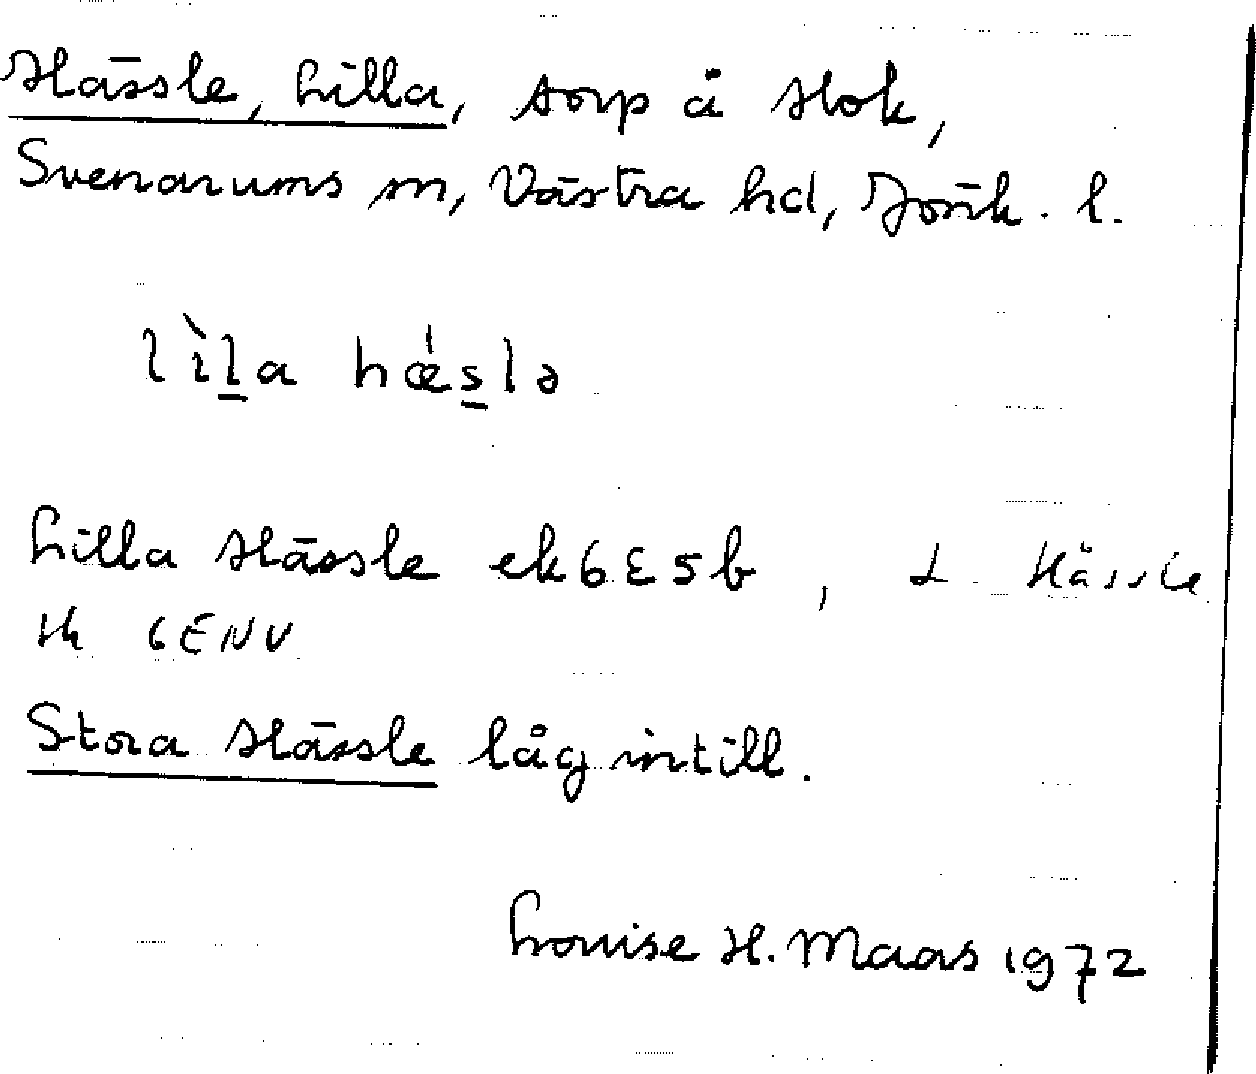 Hässle, Lilla, torp å Hok,
Svenarums sn, Västra hd, Jönk. l.
lìl̠a hǽs̠lə
Lilla Hässle ek6E5b, L Hässle
Hk 6ENV
Stora Hässle låg intill.
Louise H. Maas 1972